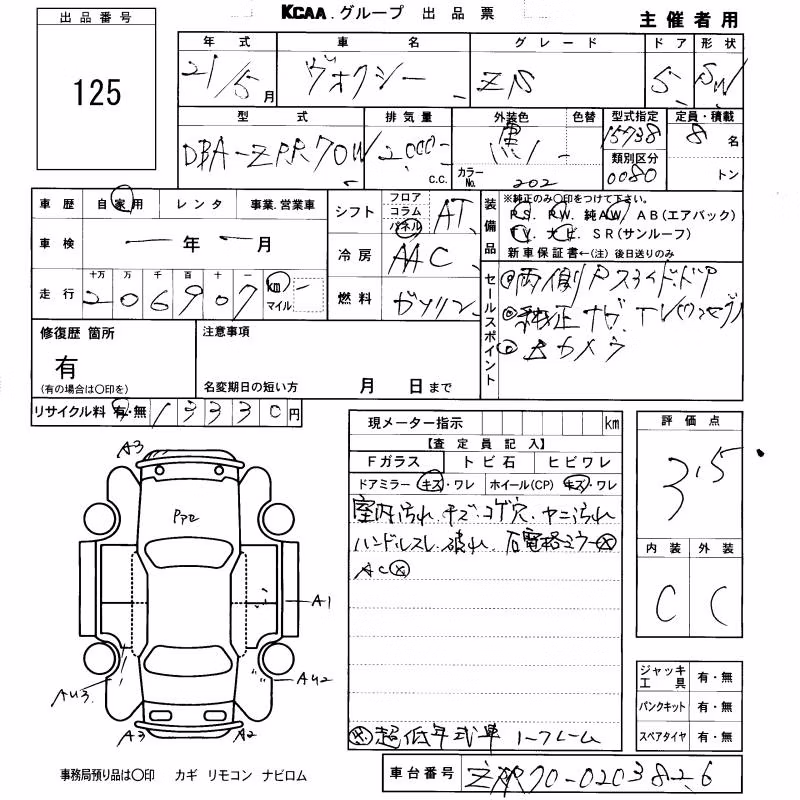 KCAA.グループ 出品票
主催者用
出品番号
125
年式 車名 グレード ドア 形状
21/5月 ヴォクシー ZS 5 SW
型式 排気量 外装色 色替 型式指定 定員・積載
DBA-ZRR70W 2000 c.c. 黒 15738 8名
カラーNo. 202 類別区分 0080 トン
車歴 自家用 レンタ 事業.営業車
車検 ー年ー月
走行 十万 万 千 百 十 一 km マイル
206907
シフト フロア コラム パネル AT
冷房 AAC
燃料 ガソリン
装備品 ※純正のみ〇印をつけて下さい。
PS. PW. 純AW AB(エアバック)
TV. ナビ. SR(サンルーフ)
新車保証書←(注) 後日送りのみ
セールスポイント
両側Pスライドドア
純正ナビ TV(ワンセグ)
カメラ
修復歴 箇所
有
(有の場合は〇印を)
注意事項
名変期日の短い方 月 日まで
リサイクル料 有・無 13330円
現メーター指示 km
【査定員記入】
Fガラス トビ石 ヒビワレ
ドアミラー キズ・ワレ ホイール(CP) キズ・ワレ
室内汚れ.キズ.コゲ穴.ヤニ汚れ
ハンドルスレ.破れ.右電格ミラー×
AC×
超低年式車 1-フレーム
評価点
3.5
内装 外装
C C
ジャッキ工具 有・無
パンクキット 有・無
スペアタイヤ 有・無
A3
A1
AU3
AU2
A3
A2
事務局預り品は〇印 カギ リモコン ナビロム
車台番号 ZRR70-0203826